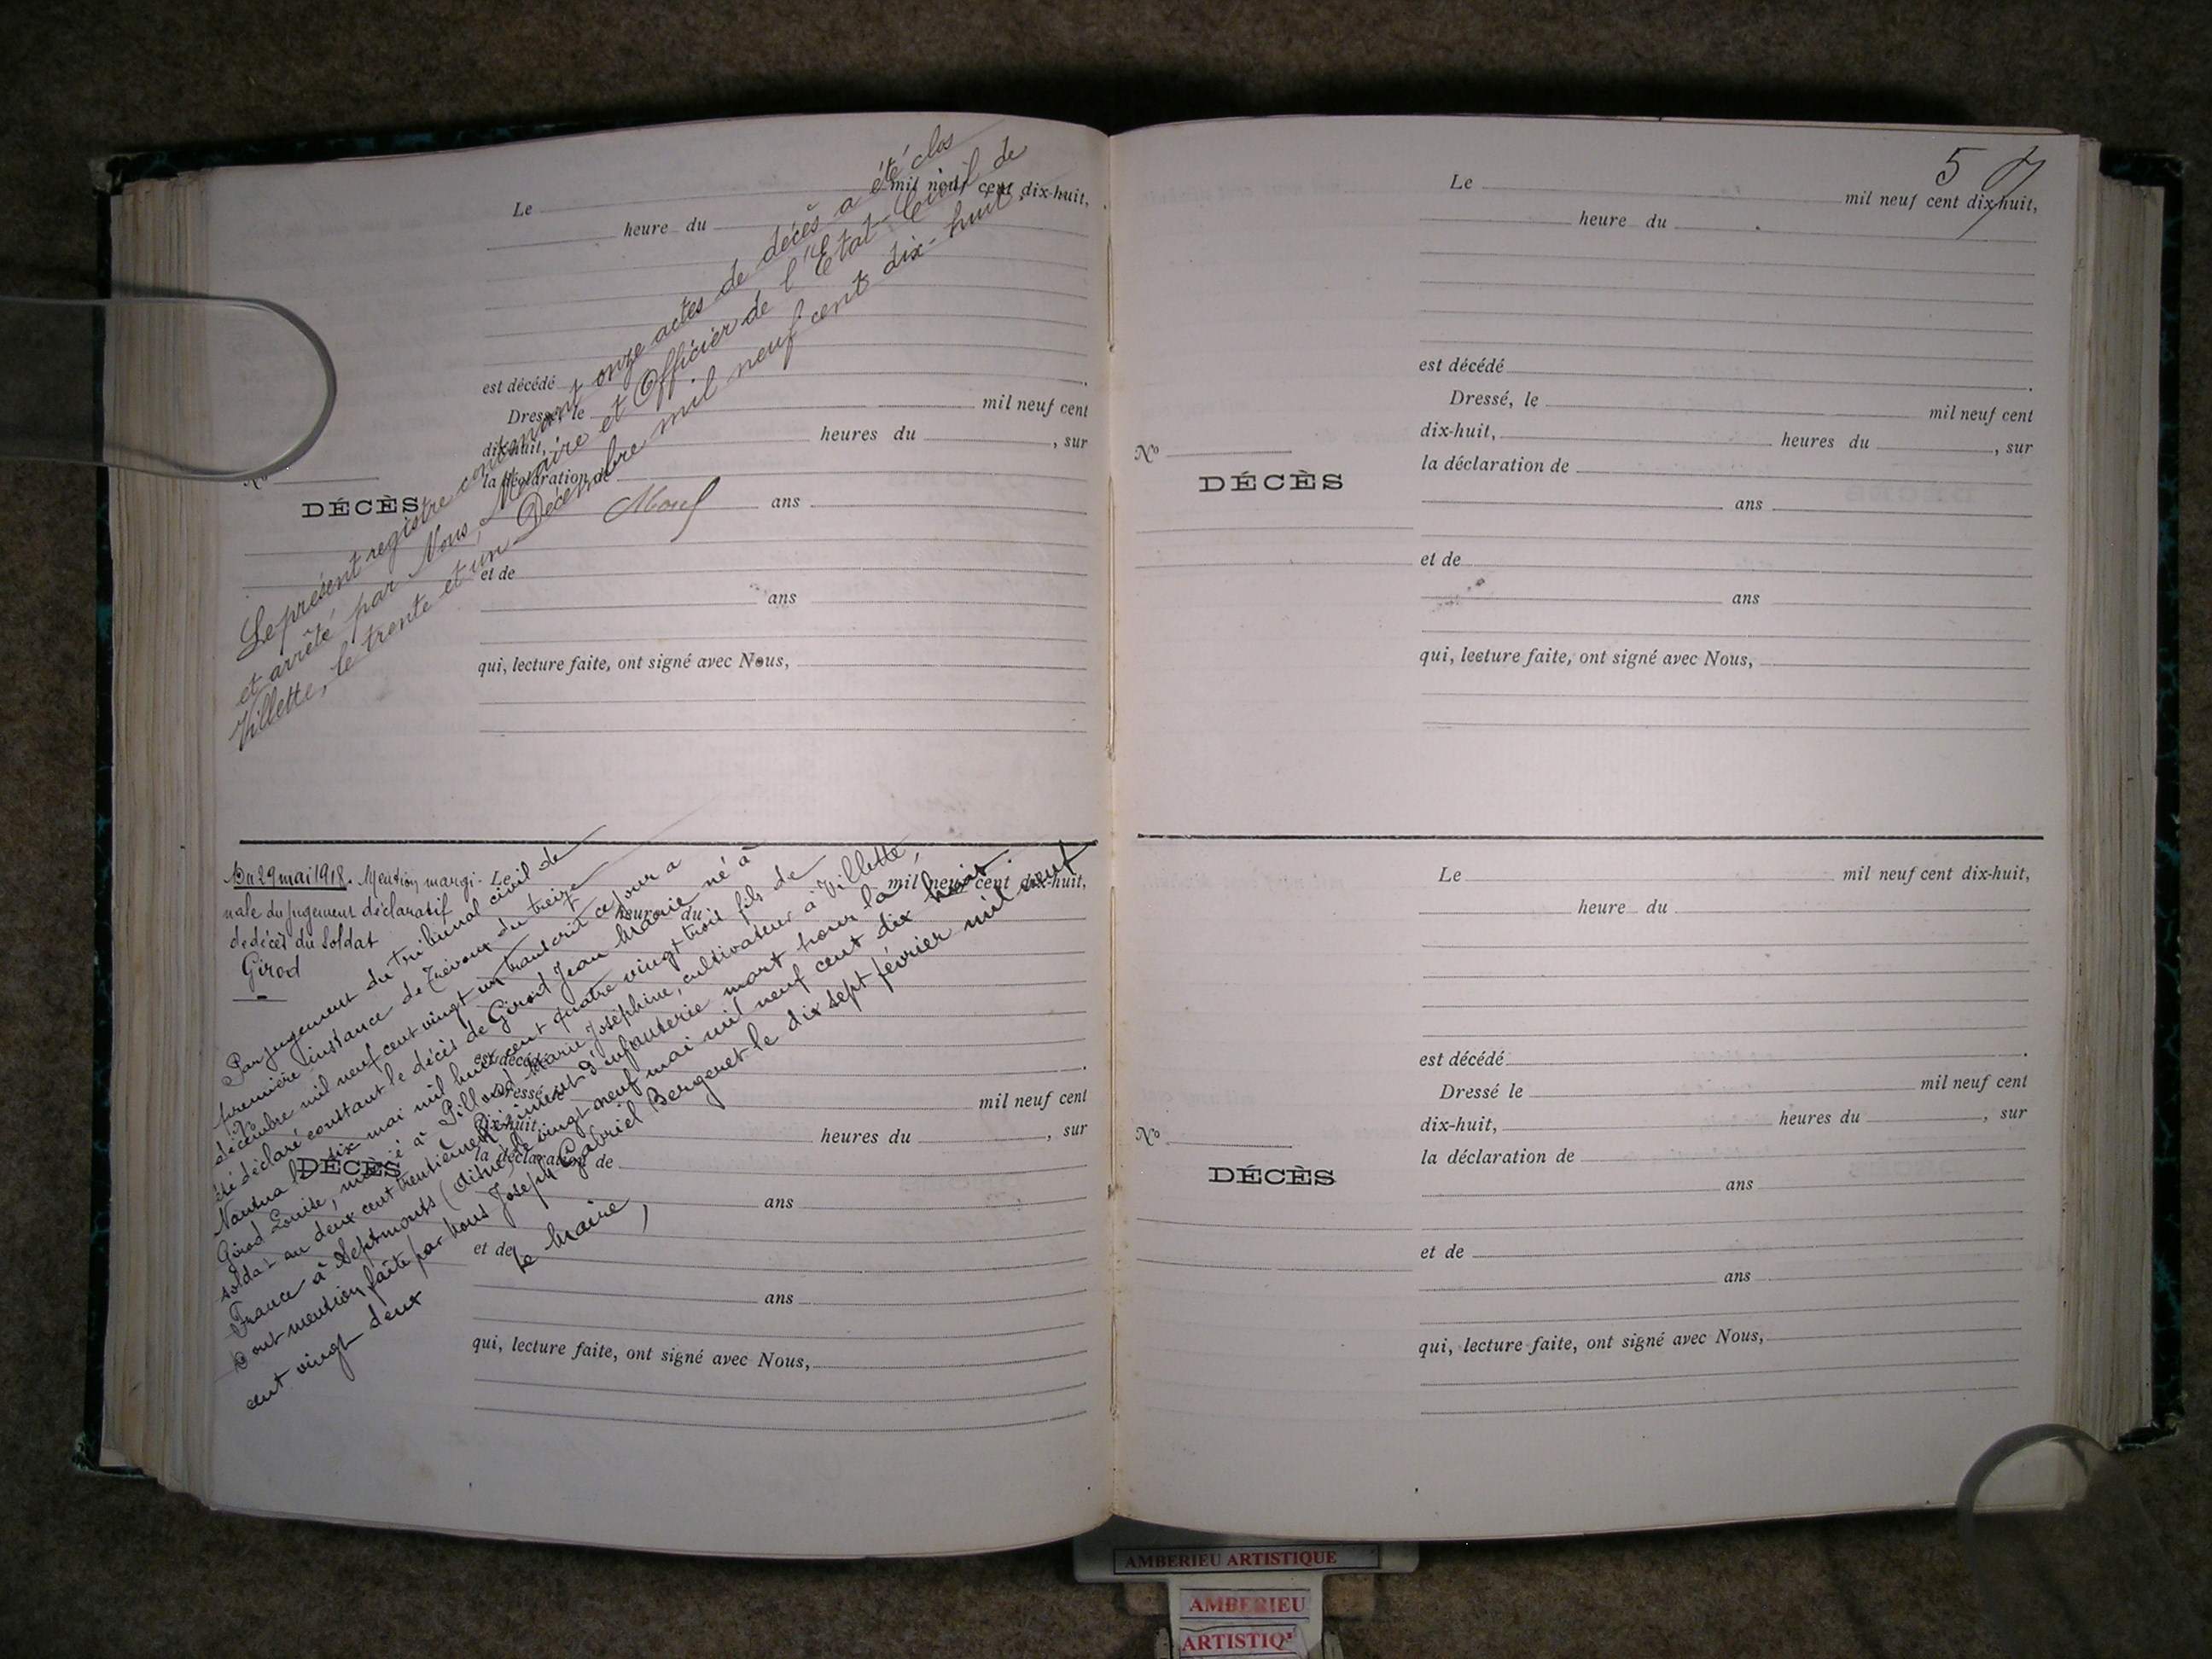 Le mil neuf cent dix-huit,
heure du
est décédé
Dressé, le mil neuf cent
dix-huit, heures du , sur
la déclaration de
No
DÉCÈS
ans
et de
ans
qui, lecture faite, ont signé avec Nous,
Le présent registre contenant onze actes de décès a été clos
et arrêté par Nous, Maire et Officier de l'Etat-Civil de
Villette, le trente et un Décembre mil neuf cent dix-huit.
Du 29 mai 1918. Mention margi-
nale du jugement déclaratif
de décès du soldat
Girod
Par jugement du tribunal civil de
première instance de Trévoux du treize
décembre mil neuf cent vingt un transcrit ce jour a
été déclaré constant le décès de Girod Jean Marie né à
Nantua le dix mai mil huit cent quatre vingt trois fils de
Girod Louise, marié à Pillod Marie Joséphine, cultivateur à Villette,
soldat au deux cent trentième régiment d'infanterie mort pour la
France à Septmonts (Aisne) le vingt neuf mai mil neuf cent dix huit.
Dont mention faite par nous Joseph Gabriel Bergeret le dix sept février mil neuf
cent vingt deux
Le Maire,
Le mil neuf cent dix-huit,
heure du
est décédé
Dressé
dix-huit,
mil neuf cent
heures du , sur
la déclaration de
No
DÉCÈS
ans
et de
ans
qui, lecture faite, ont signé avec Nous,
57
Le mil neuf cent dix-huit,
heure du
est décédé
Dressé, le mil neuf cent
dix-huit, heures du , sur
la déclaration de
No
DÉCÈS
ans
et de
ans
qui, lecture faite, ont signé avec Nous,
Le mil neuf cent dix-huit,
heure du
est décédé
Dressé le mil neuf cent
dix-huit, heures du , sur
la déclaration de
No
DÉCÈS
ans
et de
ans
qui, lecture faite, ont signé avec Nous,
AMBERIEU ARTISTIQUE
AMBERIEU
ARTISTIQ